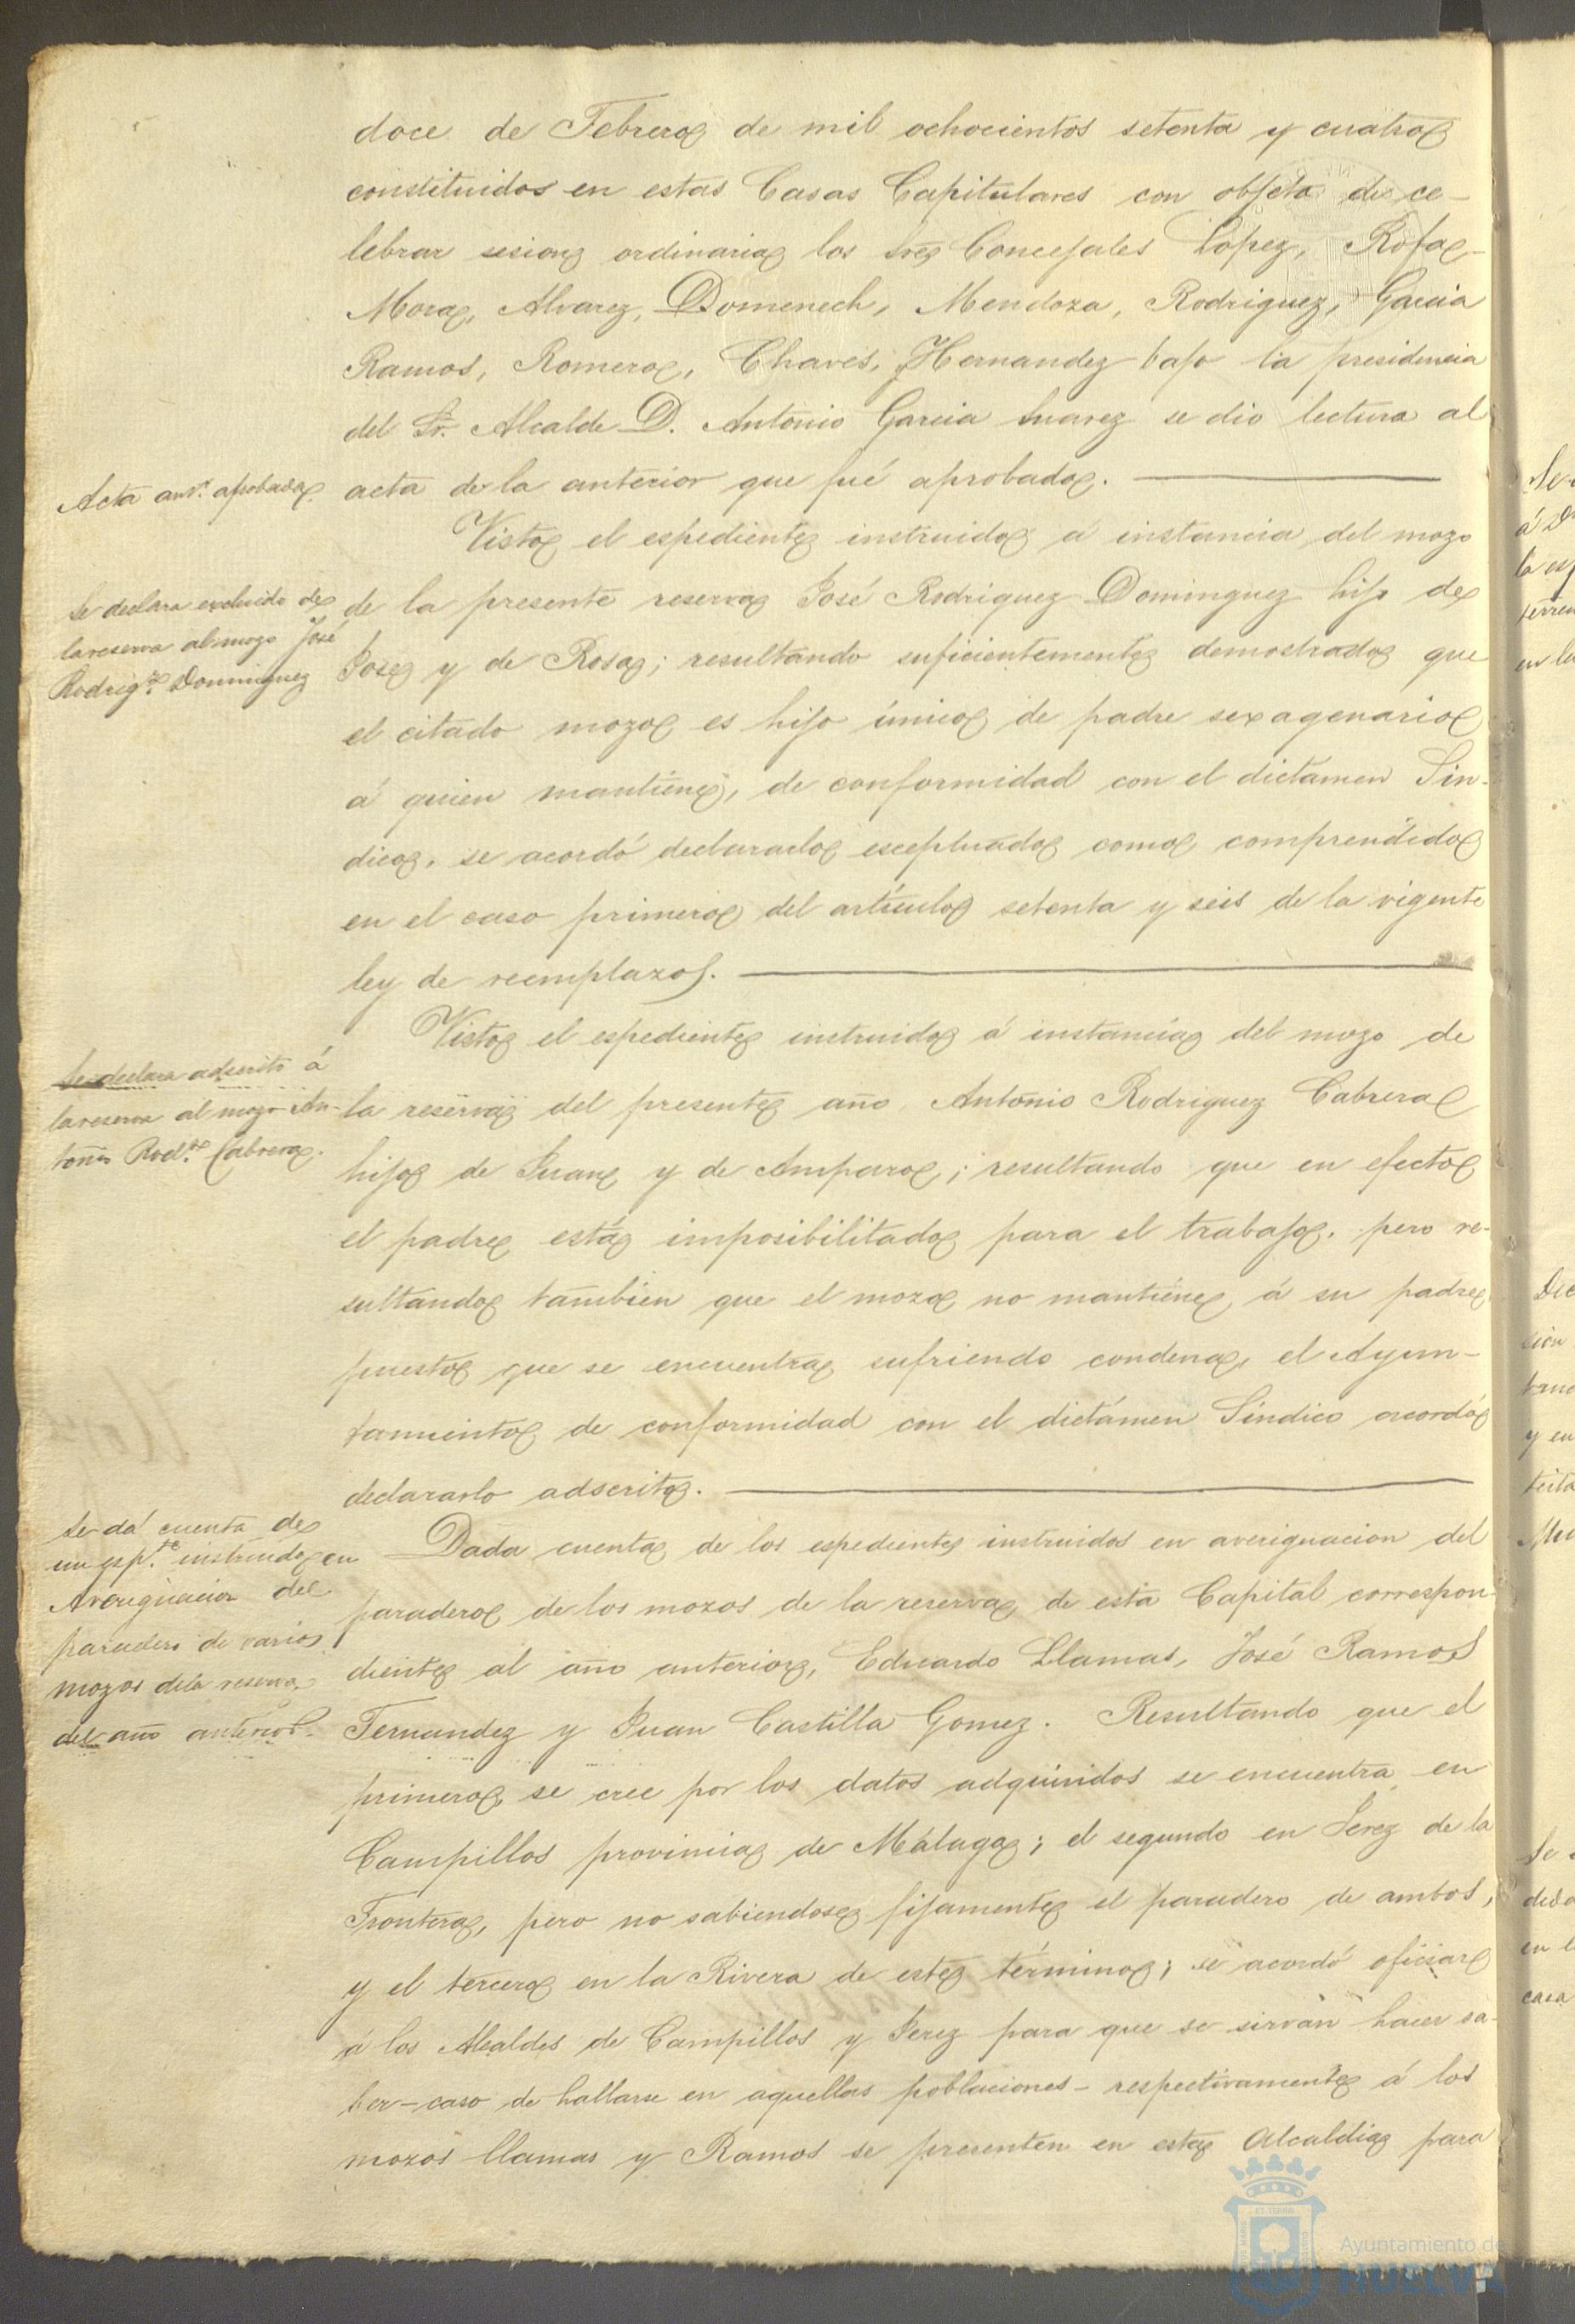 doce de Febrero de mil ochocientos setenta y cuatro
constituidos en estas Casas Capitulares con objeto de ce-
lebrar sesion ordinaria los Sres Concejales Lopez, Rofa
Mora, Alvarez, Domenech, Mendoza, Rodriguez, Garcia
Ramos, Romero, Chaves, Hernandez bajo la presidencia
del Sr. Alcalde D. Antonio Garcia Suarez se dio lectura al
Acta antr. aprobada.
acta de la anterior que fué aprobada.
Visto el espediente instruido á instancia del mozo
Se declara excluido de
la reserva al mozo José
Rodrigz. Dominguez
de la presente reserva José Rodriguez Dominguez hijo de
Jose y de Rosa; resultando suficientemente demostrado que
el citado mozo es hijo único de padre sexagenario
á quien mantiene, de conformidad con el dictamen Sin-
dico, se acordó declararlo esceptuado como comprendido
en el caso primero del artículo setenta y seis de la vigente
ley de reemplazos.
Visto el espediente instruido á instancia del mozo de
Se declara adscrito á
la reserva al mozo An-
tonio Rodz. Cabrera.
la reserva del presente año Antonio Rodriguez Cabrera
hijo de Juan y de Amparo; resultando que en efecto
el padre está imposibilitado para el trabajo, pero re-
sultando tambien que el mozo no mantiene á su padre
puesto que se encuentra sufriendo condena, el Ayun-
tamiento de conformidad con el dictámen Síndico acordó
declararlo adscrito.
Se dá cuenta de
un espte. instruido en
Averiguacion del
paradero de varios
mozos de la reserva
del año anterior.
Dada cuenta de los espedientes instruidos en averiguacion del
paradero de los mozos de la reserva de esta Capital correspon-
diente al año anterior, Eduardo Llamas, José Ramos
Fernandez y Juan Castilla Gomez. Resultando que el
primero, se cree por los datos adquiridos se encuentra en
Campillos provincia de Málaga; el segundo en Jerez de la
Frontera, pero no sabiendose fijamente el paradero de ambos,
y el tercero en la Rivera de este término; se acordó oficiar
á los Alcaldes de Campillos y Jerez para que se sirvan hacer sa-
ber-caso de hallarse en aquellas poblaciones-respectivamente á los
mozos Llamas y Ramos se presenten en esta Alcaldia para
Ayuntamiento de
HUELVA